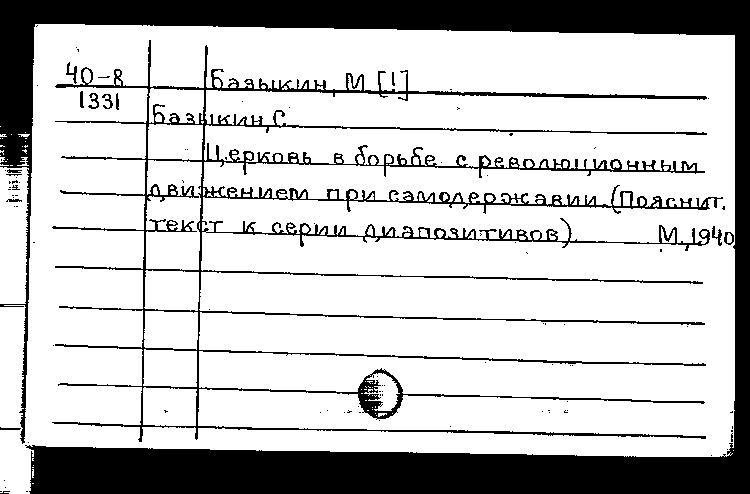 40-8 Базыкин, М [!]
1331
Базыкин, С.
Церковь в борьбе с революционным
движением при самодержавии. (Пояснит.
текст к серии диапозитивов). М., 1940.